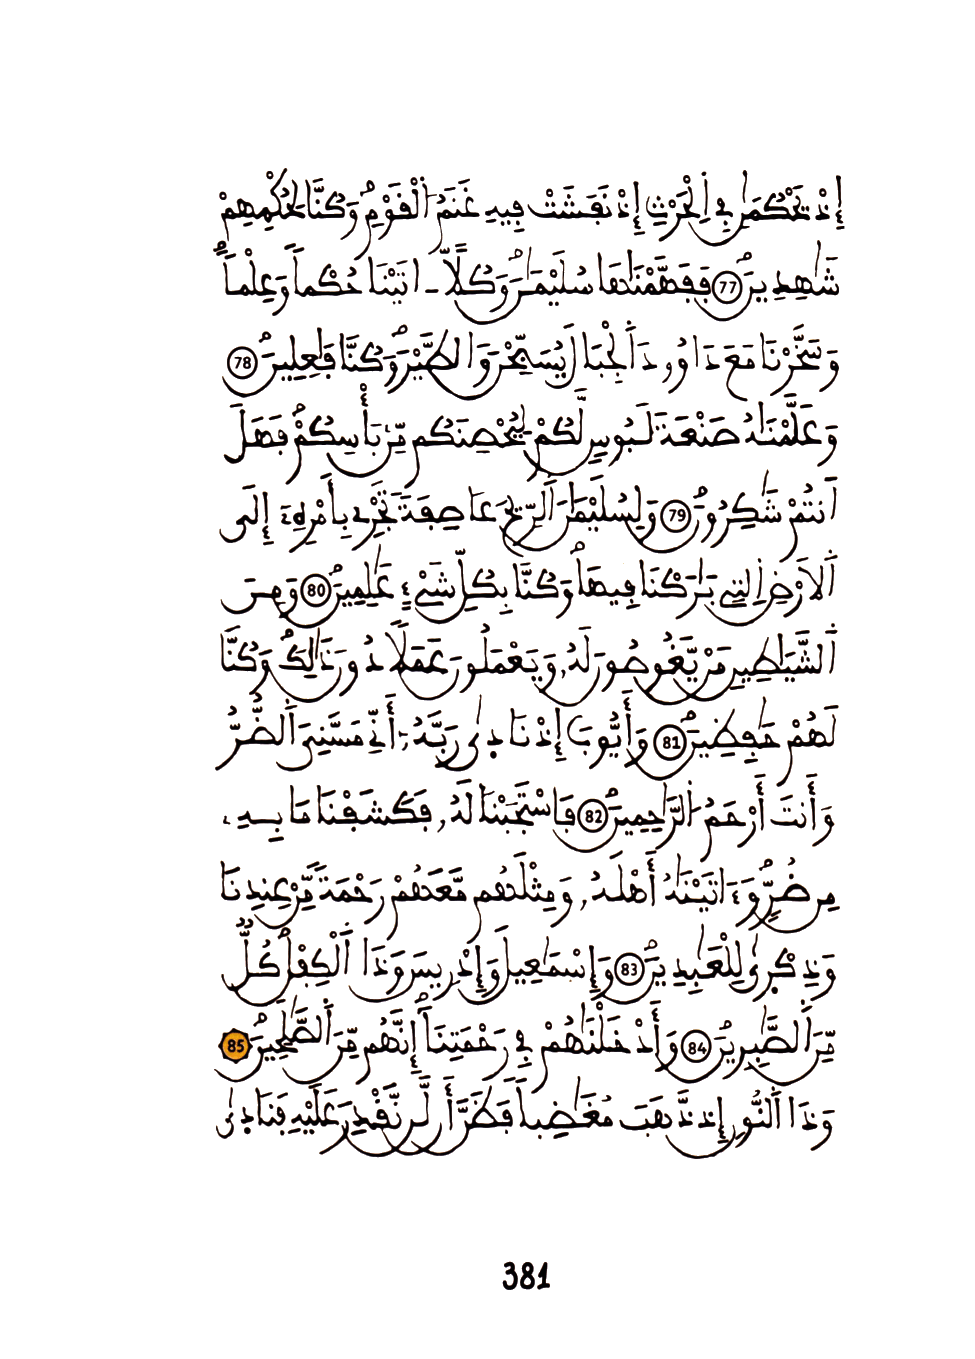 إِذْ يَحْكُمَٰنِ فِے اِ۬لْحَرْثِ إِذْ نَفَشَتْ فِيهِ غَنَمُ اُ۬لْقَوْمِۖ وَكُنَّا لِحُكْمِهِمْ
شَٰهِدِينَۖ 77 فَفَهَّمْنَٰهَا سُلَيْمَٰنَۖ وَكُلّاً ـ اتَيْنَا حُكْماً وَعِلْماًۖ
وَسَخَّرْنَا مَعَ دَاوُۥدَ اَ۬لْجِبَالَ يُسَبِّحْنَ وَالطَّيْرَۖ وَكُنَّا فَٰعِلِينَۖ 78
وَعَلَّمْنَٰهُ صَنْعَةَ لَبُوسٖ لَّكُمْ لِيُحْصِنَكُم مِّنۢ بَأْسِكُمْۖ فَهَلَ
اَنتُمْ شَٰكِرُونَۖ 79 وَلِسُلَيْمَٰنَ اَ۬لرِّيحَ عَاصِفَةٗ تَجْرِے بِأَمْرِهِۦٓ إِلَي
اَ۬لَارْضِ اِ۬لتِے بَٰرَكْنَا فِيهَاۖ وَكُنَّا بِكُلِّ شَےْءٍ عَٰلِمِينَۖ 80 وَمِنَ
اَ۬لشَّيَٰطِينِ مَنْ يَّغُوصُونَ لَهُۥ وَيَعْمَلُونَ عَمَلاٗ دُونَ ذَٰلِكَۖ وَكُنَّا
لَهُمْ حَٰفِظِينَۖ 81 وَأَيُّوبَ إِذْ نَادٜيٰ رَبَّهُۥٓ أَنِّے مَسَّنِيَ اَ۬لضُّرُّ
وَأَنتَ أَرْحَمُ اُ۬لرَّٰحِمِينَۖ 82 فَاسْتَجَبْنَا لَهُۥ فَكَشَفْنَا مَا بِهِۦ
مِن ضُرّٖۖ وَءَاتَيْنَٰهُ أَهْلَهُۥ وَمِثْلَهُم مَّعَهُمْ رَحْمَةٗ مِّنْ عِندِنَا
وَذِكْر۪يٰ لِلْعَٰبِدِينَۖ 83 وَإِسْمَٰعِيلَ وَإِدْرِيسَ وَذَا اَ۬لْكِفْلِۖ كُلّٞ
مِّنَ اَ۬لصَّٰبِرِينَۖ 84 وَأَدْخَلْنَٰهُمْ فِے رَحْمَتِنَآۖ إِنَّهُم مِّنَ اَ۬لصَّٰلِحِينَۖ 85
وَذَا اَ۬لنُّونِ إِذ ذَّهَبَ مُغَٰضِباٗ فَظَنَّ أَن لَّن نَّقْدِرَ عَلَيْهِ فَنَادٜيٰ
381